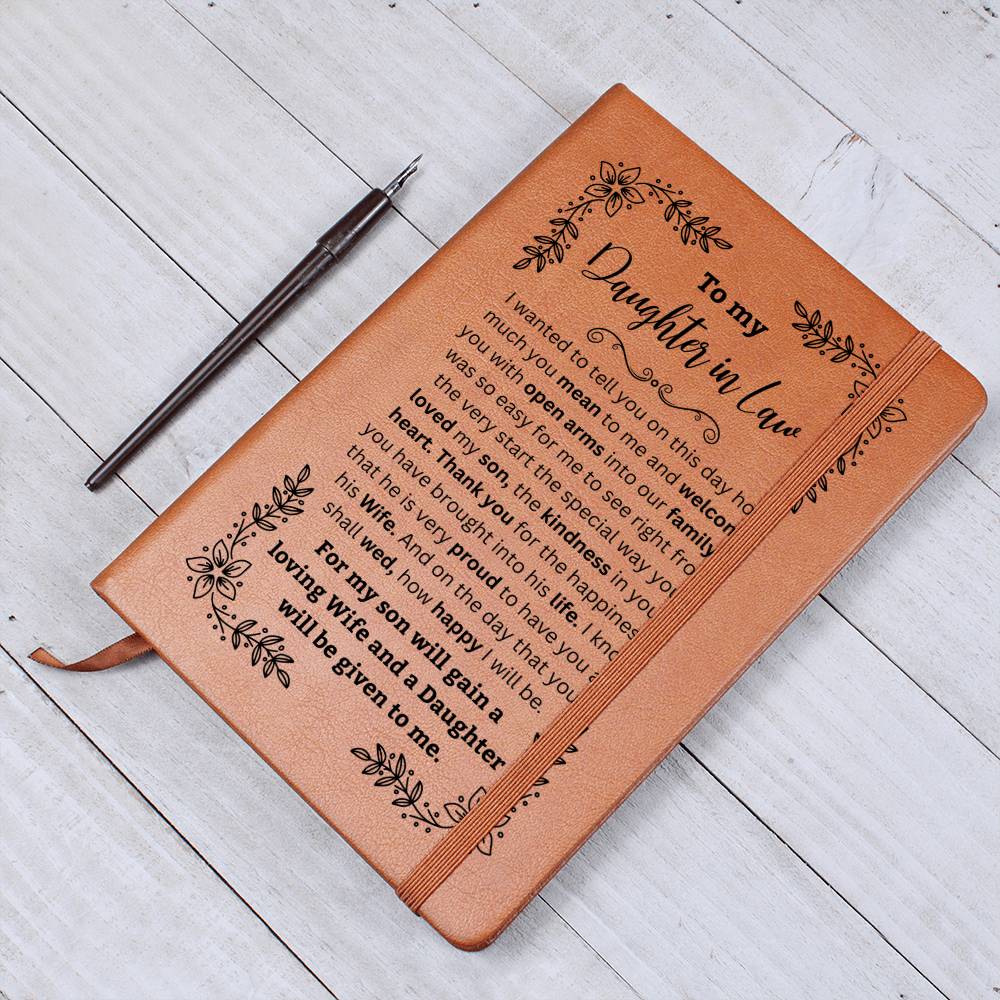 To my
Daughter in Law
I wanted to tell you on this day ho
much you mean to me and welcom
you with open arms into our family
was so easy for me to see right fro
the very start the special way you
loved my son, the kindness in you
heart. Thank you for the happines
you have brought into his life. I kno
that he is very proud to have you a
his Wife. And on the day that you
shall wed, how happy I will be.
For my son will gain a
loving Wife and a Daughter
will be given to me.